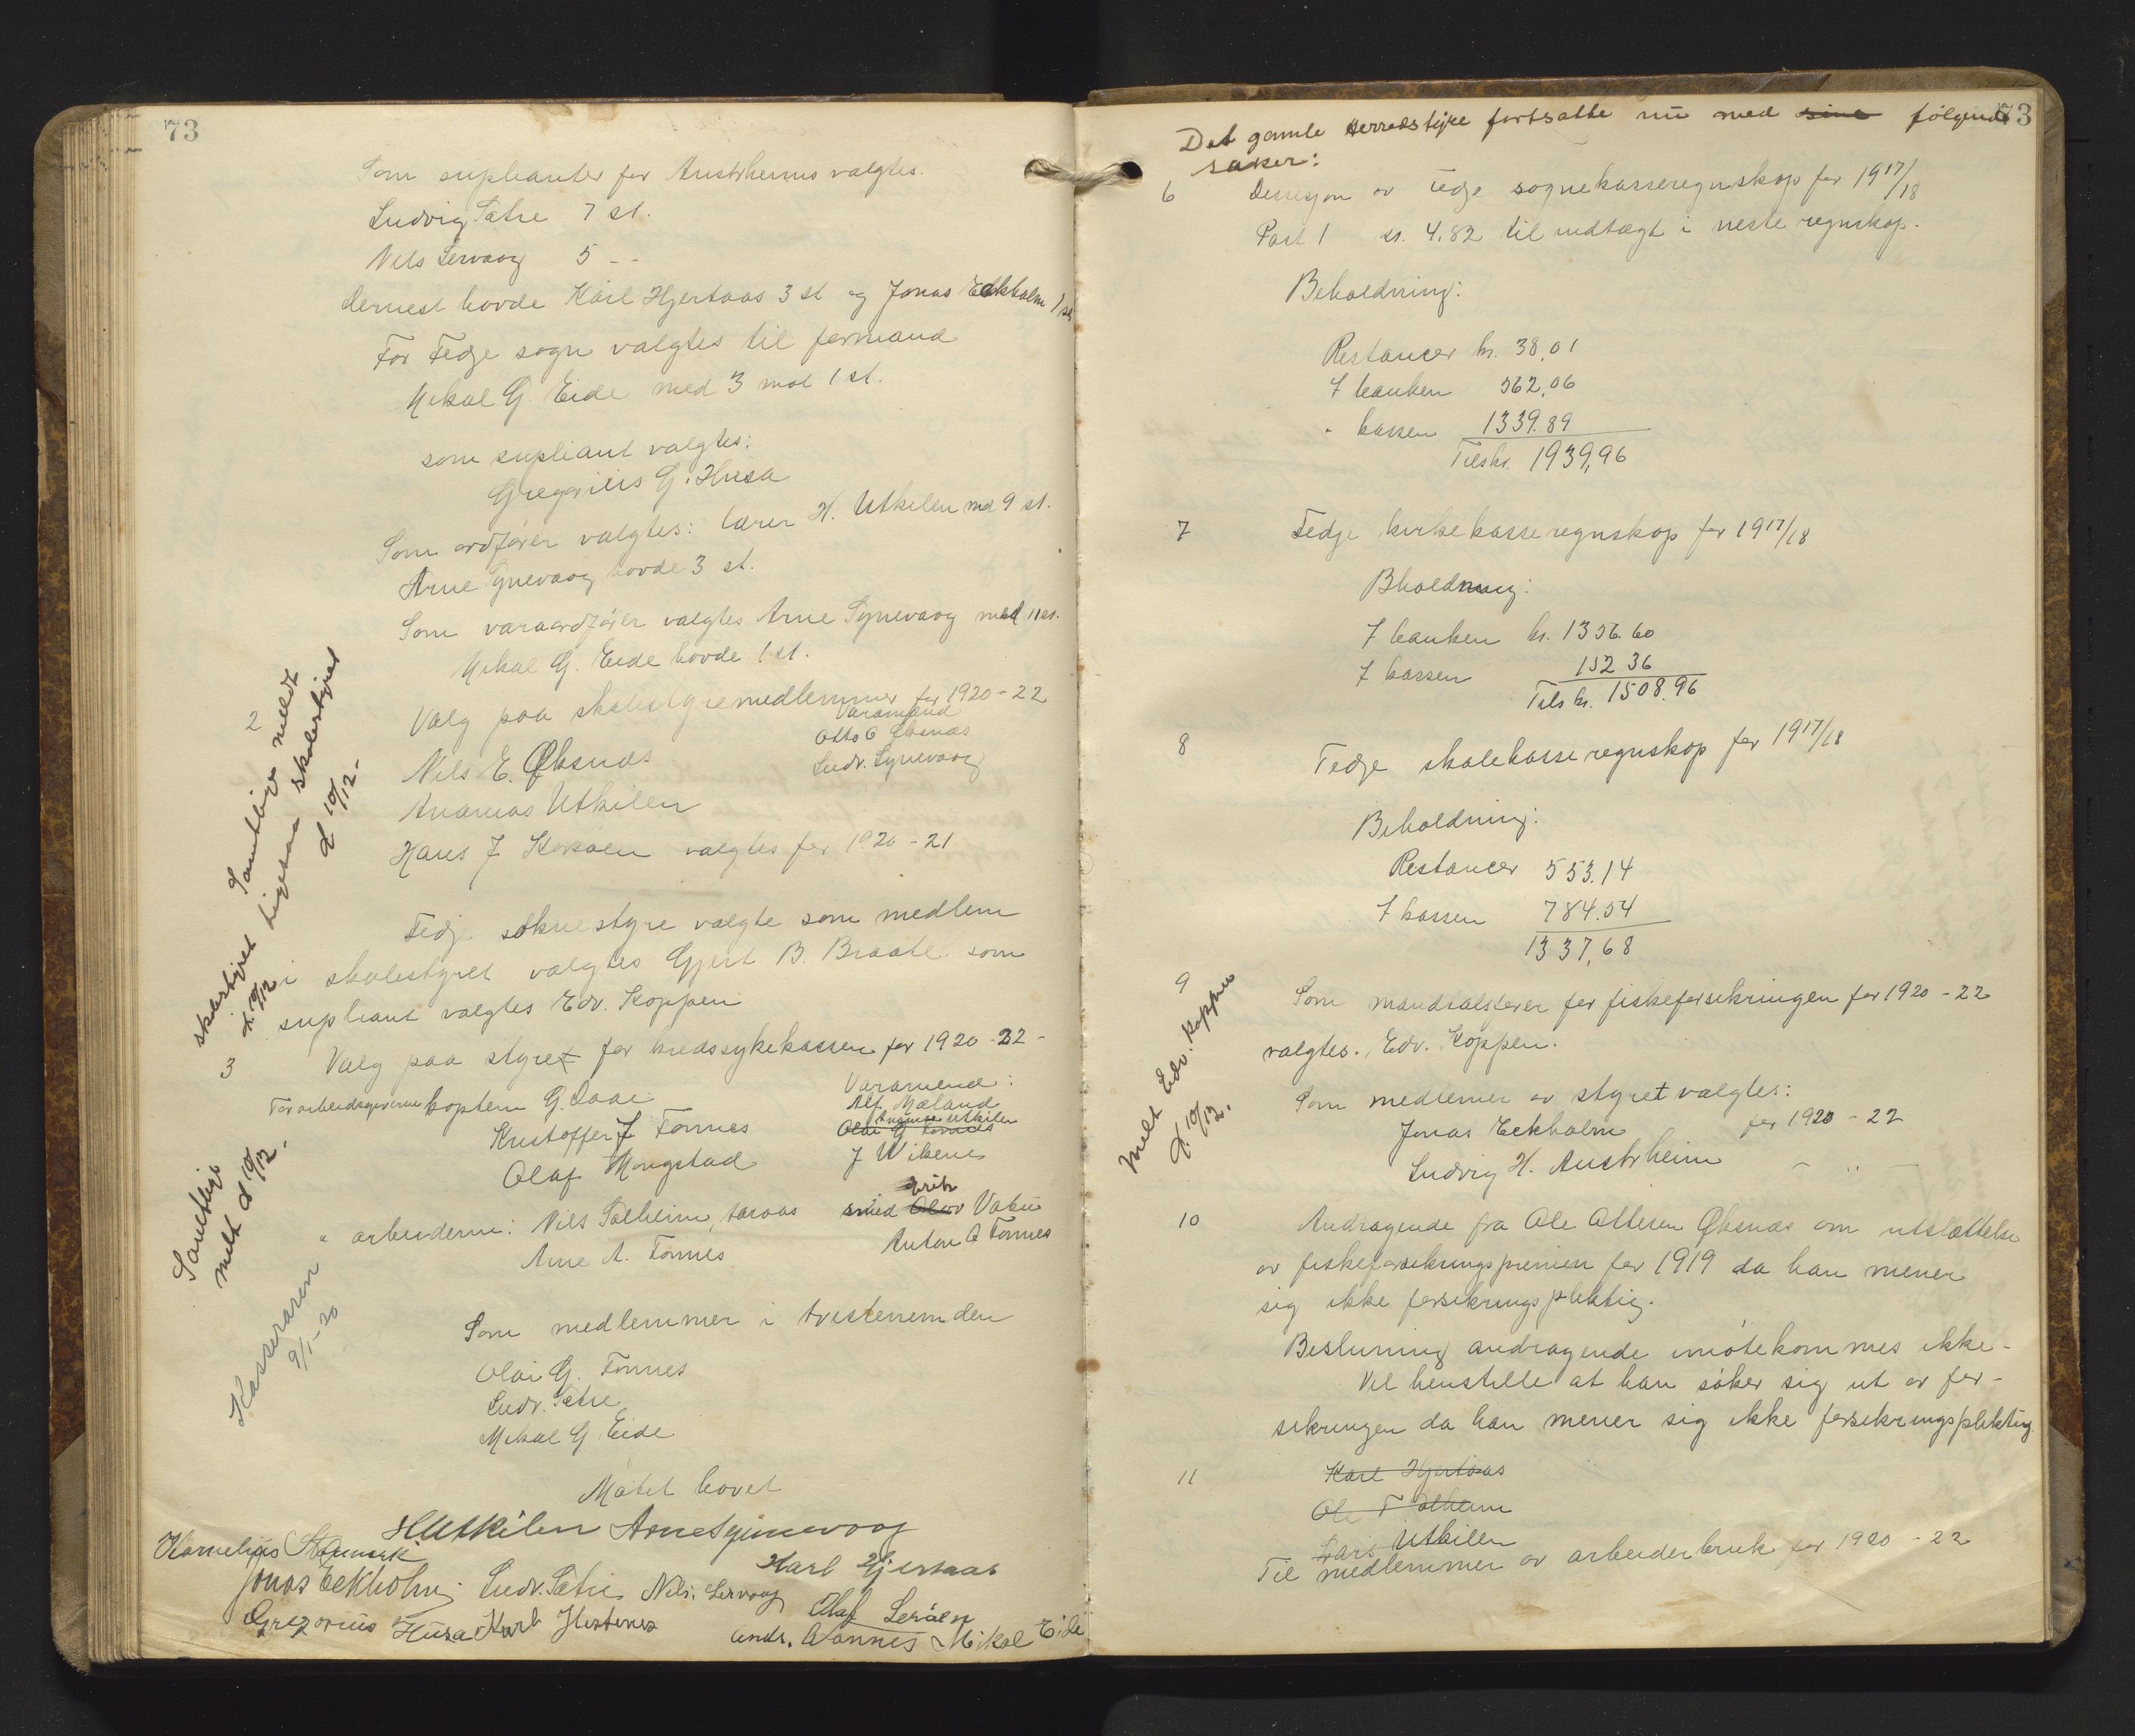 73
Som supleanter for Austrheims valgtes.
Ludvig Sætre 7 st.
Nils Lervaag 5 - -
dernest havde Karl Hjertaas 3 st og Jonas Eckholm 1 st
For Fedje sogn valgtes til formand
Mikal G. Eide med 3 mot 1 st.
som supleant valgtes:
Gregorius G. Husa
Som ordfører valgtes: lærer H. Utkilen med 9 st.
Arne Synevaag havde 3 st.
Som varaordfører valgtes Arne Synevaag med 11 st.
Mikal G. Eide havde 1 st.
2 Valg paa skolestyremedlemmer for 1920-22
Varamænd
Nils E. Øksnæs Otto O Øksnæs
Ludv. Synevaag
Ananias Utkilen
Hans J. valgtes for 1920-21
Samtlige meldt
skolestyret ligesaa skolestyret
d 10/12-
d. 10/12
Fedje soknestyre valgte som medlem
i skolestyret valgtes Gjert B. Braate. som
supleant valgtes Edv. Koppen
3 Valg paa styret for kredssykekassen for 1920-22-
Varamend:
For arbeidsgiverne kaptein G. Daae Alf Mæland
Ananias Utkilen
Kristoffer J Fonnes Olai G Fonnes
Olaf Mongstad J Wikene
Erik
" arbeiderne: Nils Solheim, taraas smed Olav Vabø
Arne A. Fonnes Anton A Fonnes
Samtlige
melt d 10/12.
Kasseraren
9/1-20
Som medlemmer i tvistenemden
Olai G. Fonnes
Ludv. Sætre
Mikal G Eide
Møtet hævet
H Utkilen Arne Synnevaag
Kornelius Karl Hjertaas
Jonas Eckholm. Ludv. Sætre Nils. Lervaag
Olaf Lerøen
Gregorius Husa Karl Hestenes Andr. Wannes Mikal Eide
73
Det gamle Herredstyre fortsatte nu med sine følgende
saker:
6 Desisjon av Fedje sognekasseregnskap for 1917/18
Post 1 kr. 4.82 til indtægt i neste regnskap.
Beholdning:
Restancer kr. 38,01
I banken 562,06
" kassen 1339.89
Tils kr. 1939,96
7 Fedje kirkekasseregnskap for 1917/18
Bholdning:
I banken kr. 1356.60
I kassen 152 36
Tils kr. 1508.96
8 Fedje skolekasseregnskap for 1917/18
Beholdning:
Restancer 553.14
I kassen 784.54
1337,68
9 Som mandtalsfører for fiskeforsikringen for 1920-22
valgtes. Edv. Koppen.
Melt Edv. Koppen
d. 10/12.
Som medlemer av styret valgtes:
Jonas Eckholm for 1920-22
Ludvig H. Austrheim - " -
10 Andragende fra Ole Ottesen Øksnæs om utslættelse
av fiskeforsikringspremien for 1919 da han mener
sig ikke forsikringspliktig.
Beslutning andragende imøtekommes ikke-
Vil henstille at han søker sig ut av for-
sikringen da han mener sig ikke forsikringspliktig.
11 Karl Hjertaas
Ole T Solheim
Lars Utkilen
Til medlemmer av arbeiderbruk for 1920-22